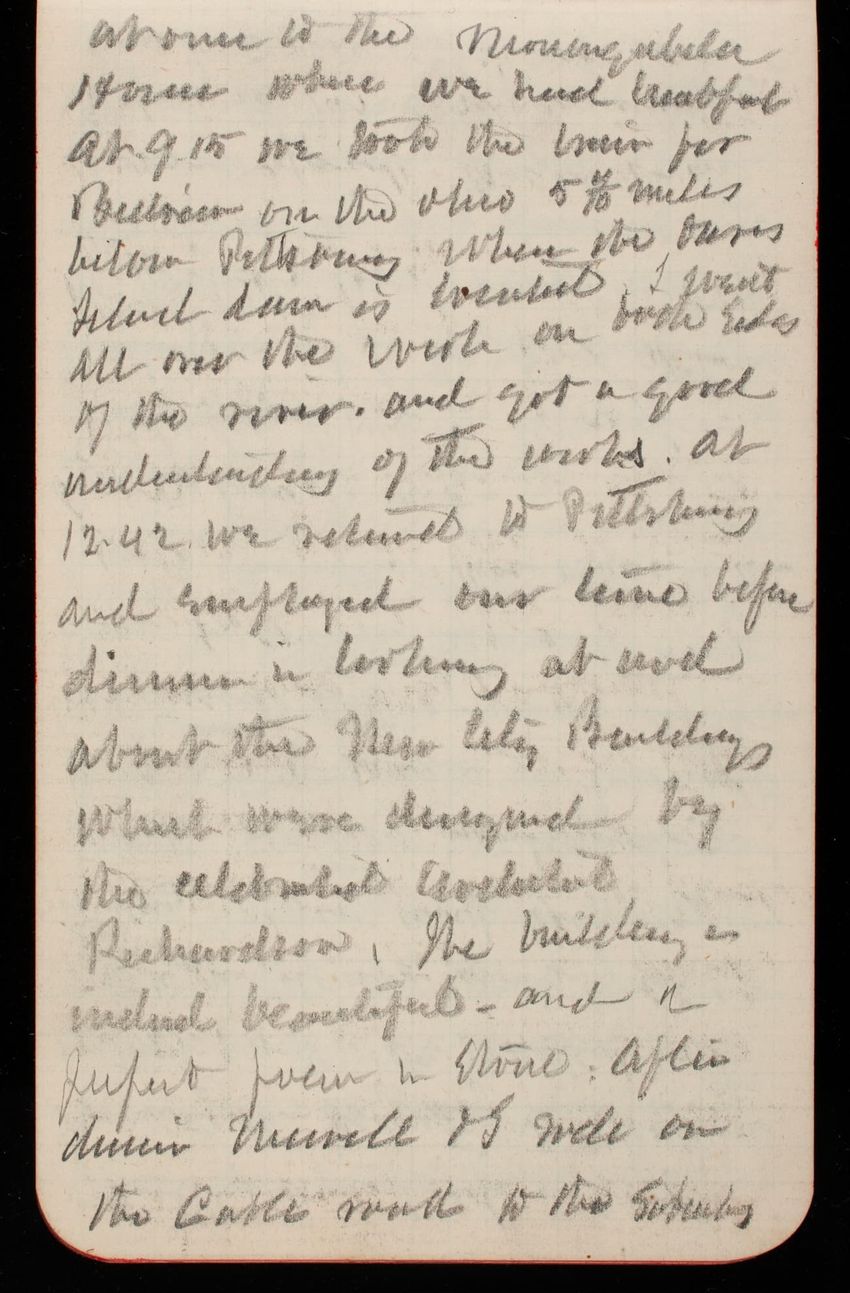 at once to the Monongahela
House where we had breakfast
At 9.15 we took the train for
Bellevue on the Ohio 5 miles
below Pittsburg when the Davis
Island dam is located, I went
all over the work on both sides
of the river. and got a good
understanding of the works. At
12.42 we returned to Pittsburg
and employed our time before
dinner in looking at and
about the New City Buildings
which were designed by
the celebrated Architect
Richardson, The building is
indeed beautiful - and a
perfect poem in Stone. After
dinner Merrell & I rode on
the Cable road to the Suburbs